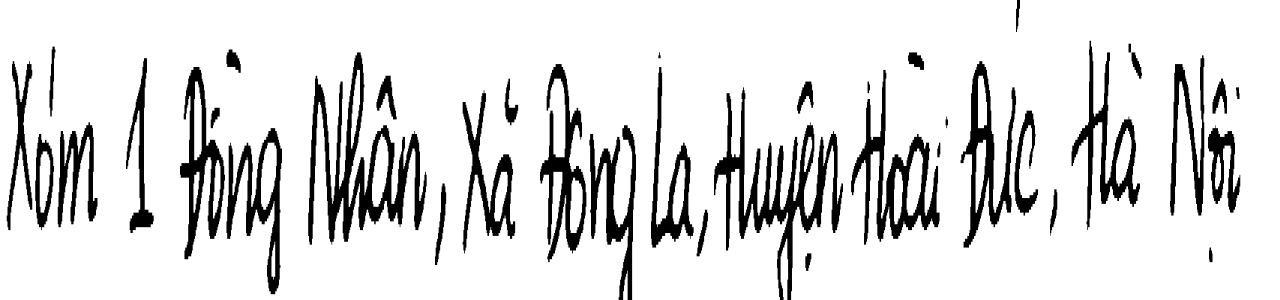 Xóm 1 Đồng Nhân, Xã Đông La, Huyện Hoài Đức, Hà Nội